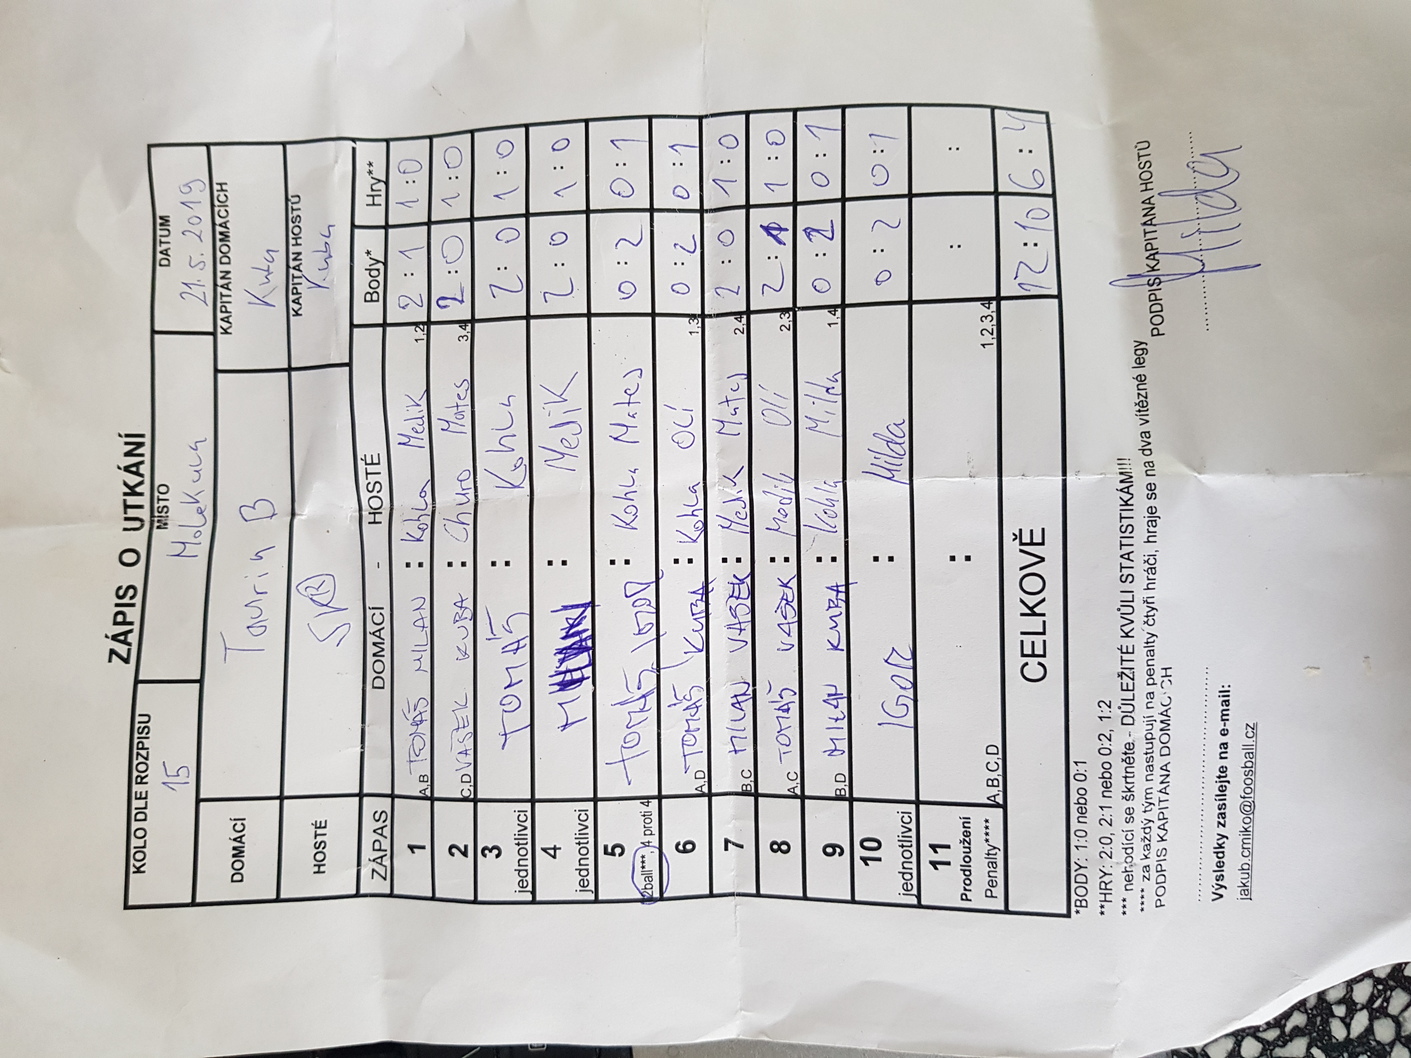 ZÁPIS O UTKÁNÍ
KOLO DLE ROZPISU MÍSTO DATUM
15 Molekula 21. 5. 2019
DOMÁCÍ Taurin B KAPITÁN DOMÁCÍCH
Kuba
HOSTÉ KAPITÁN HOSTŮ
Kuba
ZÁPAS DOMÁCÍ - HOSTÉ Body* Hry**
1 A,B TOMÁŠ MILAN : Kohla Medik 1,2 2 : 1 1 : 0
2 C,D VAŠEK KUBA : Churo Mates 3,4 2 : 0 1 : 0
3 jednotlivci TOMÁŠ : Kohla 2 : 0 1 : 0
4 jednotlivci : Medik 2 : 0 1 : 0
5 2ball***, 4 proti 4 TOMÁŠ IGOR : Kohla Mates 0 : 2 0 : 1
6 A,D TOMÁŠ KUBA : Kohla Olí 1,3 0 : 2 0 : 1
7 B,C MILAN VAŠEK : Medik Mates 2,4 2 : 0 1 : 0
8 A,C TOMÁŠ VAŠEK : Medik Olí 2,3 2 : 1 1 : 0
9 B,D MILAN KUBA : Kohla Milda 1,4 0 : 2 0 : 1
10 jednotlivci IGOR : Milda 0 : 2 0 : 1
11 Prodloužení : : :
Penalty**** A,B,C,D 1,2,3,4
CELKOVĚ 12 : 10 6 : 4
*BODY: 1:0 nebo 0:1
**HRY: 2:0, 2:1 nebo 0:2, 1:2
*** nehodící se škrtněte - DŮLEŽITÉ KVŮLI STATISTIKÁM!!!
**** za každý tým nastupují na penalty čtyři hráči, hraje se na dva vítězné legy
PODPIS KAPITÁNA DOMÁCÍCH PODPIS KAPITÁNA HOSTŮ
Milda
Výsledky zasílejte na e-mail:
jakub.cmiko@foosball.cz